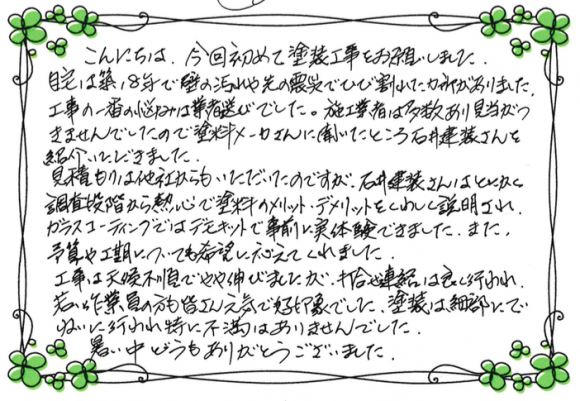 こんにちは、今回初めて塗装工事をお願いしました。
自宅は築18年で壁の汚れや先の震災でひび割れたカ所がありました。
工事の一番の悩みは業者選びでした。施工業者は多数あり見当がつ
きませんでしたので塗料メーカさんに聞いたところ石井建装さんを
紹介いただきました。
見積もりは他社からもいただいたのですが、石井建装さんはとにかく
調査段階から熱心で塗料のメリット・デメリットをくわしく説明され、
ガラスコーティングではデモキットで事前に実体験できました。また、
予算や工期についても希望に応えてくれました。
工事は天候不順でやや伸びましたが、打合せ連絡は良く行われ、
若い作業員の方も皆さん元気で好印象でした。塗装は細部にてい
ねいに行われ特に不満はありませんでした。
暑い中どうもありがとうございました。